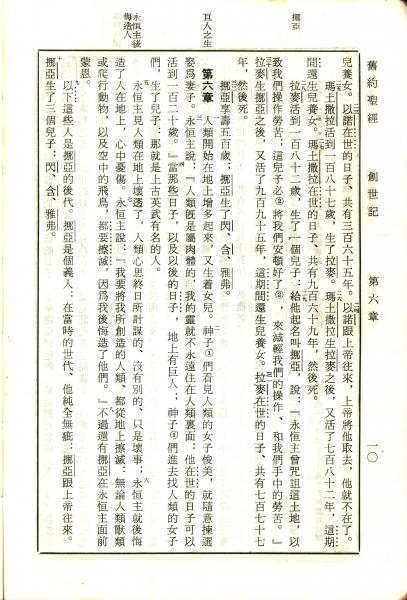 舊約聖經　創世記　第六章　一〇
挪亞
巨人之生
永恒主後悔造人
兒養女。以諾在世的日子、共有三百六十五年。以諾跟上帝往來，上帝將他取去，他就不在了。
瑪土撒拉活到一百八十七歲，生了拉麥。瑪土撒拉生拉麥之後，又活了七百八十二年，這期
間還生兒養女。瑪土撒拉在世的日子、共有九百六十九年，然後死。
拉麥活到一百八十二歲，生了一個兒子；給他起名叫挪亞，說：『永恒主曾咒詛這土地，以
致我們操作勞苦；這兒子必②將我們安頓好了③，來減輕我們的操作、和我們手中的勞苦。』
拉麥生挪亞之後，又活了五百九十五年，這期間還生兒養女。拉麥在世的日子、共有七百七十七
年，然後死。
挪亞享壽五百歲，挪亞生了閃、含、雅弗。
第六章　人類開始在地上增多起來，又生着女兒。神子①們看見人類的女子俊美，就隨意揀選
娶爲妻子。永恒主說：『人類旣是屬肉體的，我的靈就不永遠住在人類裏面；他在世的日子可以
活到一百二十歲。』當那些日子、以及以後的日子，地上有巨人；神子①們進去找人類的女子
們，生了兒子；那就是上古英武有名的人。
永恒主見人類在地上壞透了，人類心思終日所計謀的、沒有別的、只是壞事；永恒主就後悔
造了人在地上，心中憂傷。永恒主說：『我要將我所創造的人類、都從地上擦滅：無論人類獸類
或爬行動物，以及空中的飛鳥，都要擦滅，因爲我後悔造了他們。』不過還有挪亞在永恒主面前
蒙恩。
以下這些人是挪亞的後代。挪亞是個義人：在當時的世代、他純全無疵：挪亞跟上帝往來。
挪亞生了三個兒子：閃、含、雅弗。